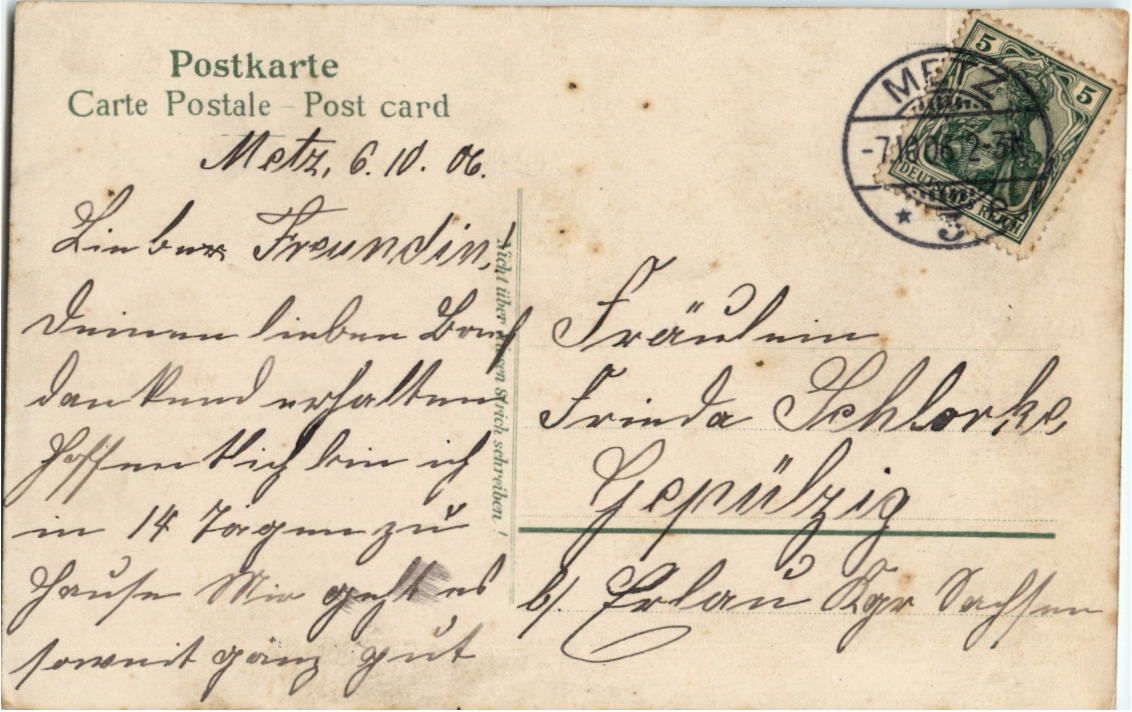 Postkarte
Carte Postale – Post card
Metz, 6.10.06.
Liebe Freundin!
Deinen lieben Brief
dankend erhalten
Hoffentlich bin ich
in 14 Tagen zu
Hause Mir geht es
soweit ganz gut
Nicht über diesen Strich schreiben!
METZ
-7.10.06. 2-3N
* 3
5 5
DEUTSCHES REICH
Fräulein
Frieda Schlorke,
Gepülzig
b/. Erlau Kgr Sachsen